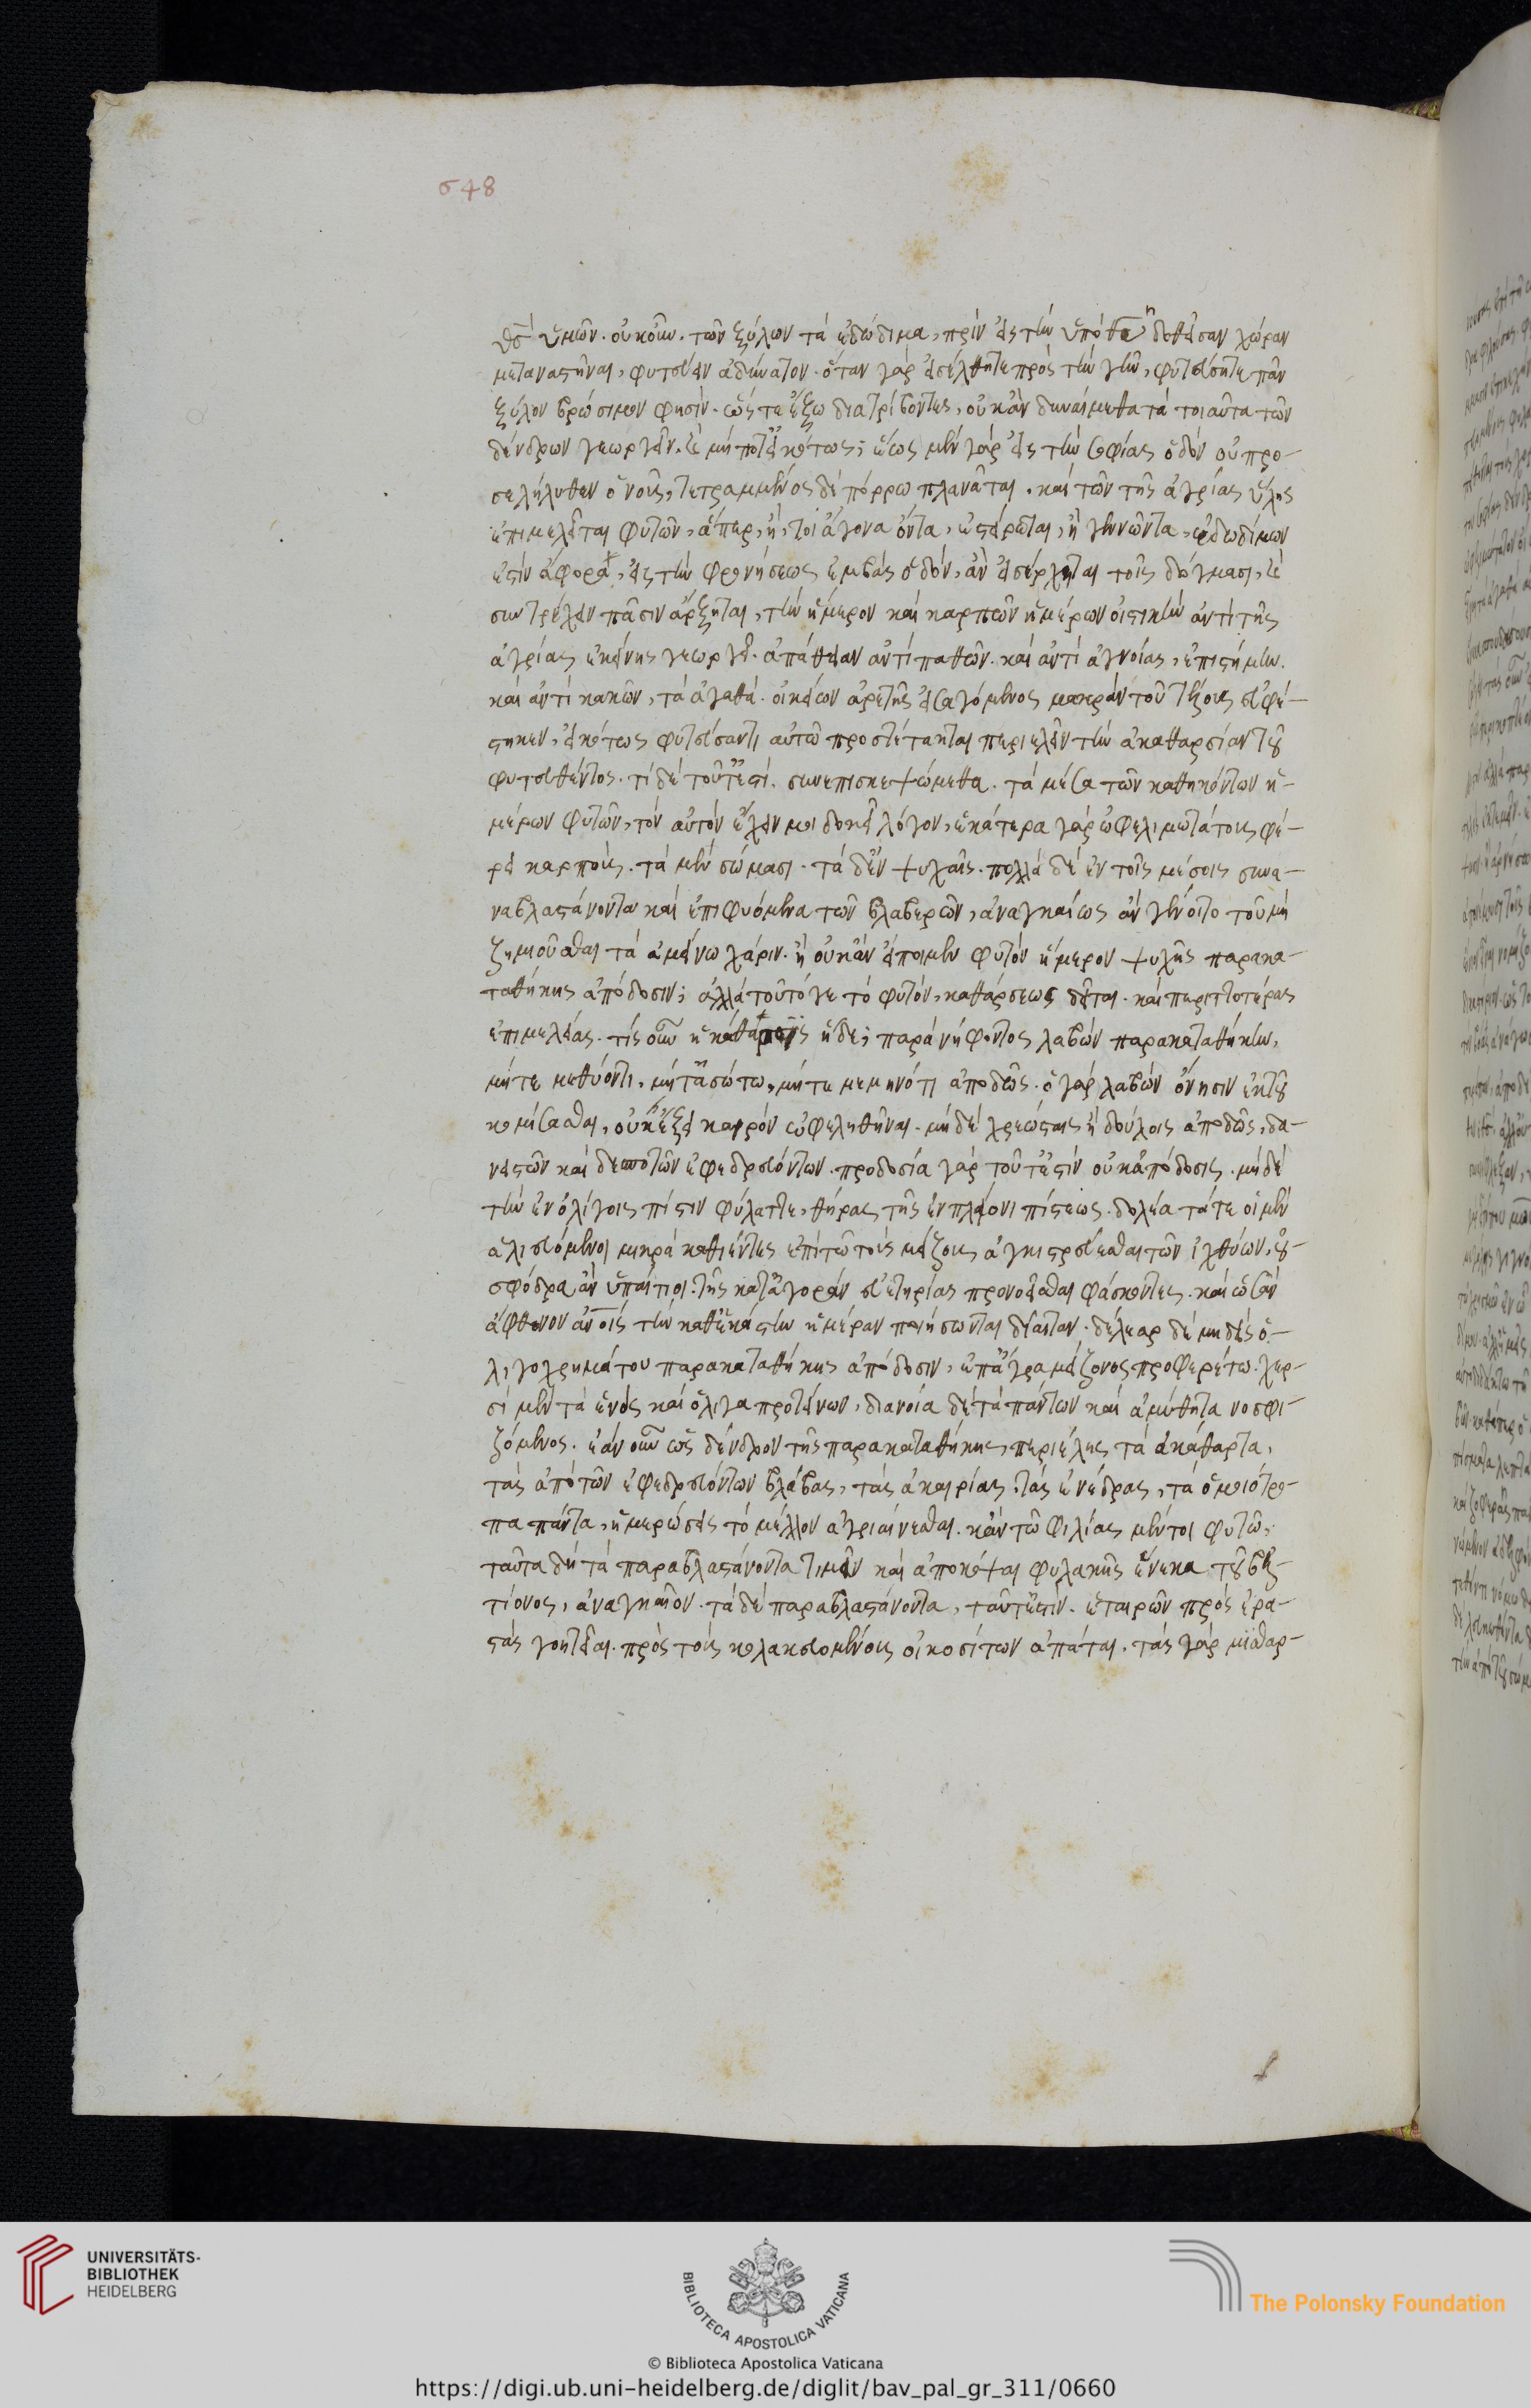 648
θς ὑμῶν. οὐκοῦν. τῶν ξύλων τὰ ἐδώδιμα, πρὶν εἰς τὴν ὑπὸ θυ δοθεῖσαν χώραν
μεταναστῆναι, φυτεύειν ἀδύνατον. ὅταν γὰρ εἰσέλθητε πρὸς τὴν γῆν, φυτεύσητε πᾶν
ξύλον βρώσιμον φησίν. ὥστε ἔξω διατρίβοντες, οὐκ ἂν δυναίμεθα τὰ τοιαῦτα τῶν
δένδρων γεωργεῖν. καὶ μήποτ' εἰκότως; ἕως μὲν γὰρ εἰς τὴν σοφίας ὁδὸν οὐ προ-
σελήλυθεν ὁ νοῦς, τετραμμένος δὲ πόρρω πλανᾶται. καὶ τῶν τῆς ἀγρίας ὕλης
ἐπιμελεῖται φυτῶν, ἅπερ, ἤτοι ἄγονα ὄντα, ἐστείρωται, ἢ γεννῶντα, ἐδωδίμων
ἐστὶν ἄφορα, εἰς τὴν φρονήσεως ἐμβὰς ὁδὸν, ἂν εἰσέρχηται τοῖς δόγμασι, καὶ
συντρέχειν πᾶσιν ἄρξηται, τὴν ἥμερον καὶ καρπῶν ἡμέρων οἰστικὴν ἀντὶ τῆς
ἀγρίας ἐκείνης γεωργεῖ. ἀπάθειαν ἀντὶ παθῶν. καὶ ἀντὶ ἀγνοίας, ἐπιστήμην.
καὶ ἀντὶ κακῶν, τὰ ἀγαθά. οἰκείων ἀρετῆς εἰσαγόμενος μακρὰν τοῦ τέλους εὐφέ-
στηκεν, εἰκότως φυτεύσαντι αὐτῷ προστέτακται περιελεῖν τὴν ἀκαθαρσίαν τοῦ
φυτευθέντος. τί δὲ τοῦτ' ἐστί. συνεπισκεψώμεθα. τὰ μέσα τῶν καθηκόντων ἡ-
μέρων φυτῶν, τὸν αὐτὸν ἔχειν μοι δοκεῖ λόγον, ἑκάτερα γὰρ ὠφελιμωτάτους φέ-
ρει καρπούς. τὰ μὲν σώμασι. τὰ δὲ ἐν ψυχαῖς. πολλὰ δὲ ἐν τοῖς μέσοις συνα-
ναβλαστάνοντα καὶ ἐπιφυόμενα τῶν βλαβερῶν, ἀναγκαίως ἂν γένοιτο τοῦ μὴ
ζημιοῦσθαι τὰ ἀμείνω χάριν. ἢ οὐκ ἂν εἴποιμεν φυτὸν ἥμερον ψυχῆς παρακα-
ταθήκης ἀπόδοσιν; ἀλλὰ τοῦτό γε τὸ φυτὸν, καθάρσεως δεῖται. καὶ περιττοτέρας
ἐπιμελείας. τίς οὖν ἡ κάθαρσις ἥδε; παρὰ νήφοντος λαβὼν παρακαταθήκην,
μήτε μεθύοντι, μήτ' ἀσώτῳ, μήτε μεμηνότι ἀποδῷς. ὁ γὰρ λαβὼν ὄνησιν ἐκ τοῦ
κομίσασθαι, οὐχ ἕξει καιρὸν ὠφεληθῆναι. μὴ δὲ χρεώσταις ἢ δούλοις ἀποδῷς, δα-
νειστῶν καὶ δεσποτῶν ἐφεδρευόντων. προδοσία γὰρ τοῦτ' ἐστὶν οὐκ ἀπόδοσις. μὴ δὲ
τὴν ἐν ὀλίγοις πίστιν φύλαττε, θήρας τῆς ἐν πλείονι πίστεως. δελέατά τε οἱ μὲν
ἁλιευόμενοι μικρὰ καθιέντες ἐπὶ τῷ τοὺς μείζους ἀγκιστρεύεσθαι τῶν ἰχθύων, οὐ
σφόδρα ἂν ὑπαίτιοι. τῆς κατ' ἀγορὰν εὐετηρίας προνοεῖσθαι φάσκοντες. καὶ ὡς ἂν
ἄφθονον ἀνοις τὴν καθ' ἑκάστην ἡμέραν ποιήσωνται δίαιταν. δέλεαρ δὲ μηδεὶς ὀ-
λιγοχρημάτου παρακαταθήκης ἀπόδοσιν, ἐπ' ἄγρᾳ μείζονος προφερέτω. χερ-
σὶ μὲν τὰ ἑνὸς καὶ ὀλίγα προτείνων, διανοίᾳ δὲ τὰ πάντων καὶ ἀμύθητα νοσφι-
ζόμενος. ἐὰν οὖν ὡς δένδρον τῆς παρακαταθήκης, περιέλῃς τὰ ἀκάθαρτα,
τὰς ἀπὸ τῶν ἐφεδρευόντων βλάβας, τὰς ἀκαιρίας, τὰς ἐνέδρας, τὰ ὁμοιότρο-
πα πάντα, ἡμερώσεις τὸ μέλλον ἀγριαίνεσθαι. κἂν τῷ φιλίας μέντοι φυτῷ,
ταῦτα δὴ τὰ παραβλαστάνοντα τιμεῖν καὶ ἀποκόψαι φυλακῆς ἕνεκα τοῦ βελ-
τίονος, ἀναγκαῖον. τὰ δὲ παραβλαστάνοντα, ταῦτ' ἐστιν. ἑταιρῶν πρὸς ἐρα-
στὰς γοητεῖαι. πρὸς τοὺς κολακευομένους οἰκοσίτων ἀπάται. τὰς γὰρ μισθαρ-
UNIVERSITÄTS-
BIBLIOTHEK
HEIDELBERG
BIBLIOTECA APOSTOLICA VATICANA
The Polonsky Foundation
© Biblioteca Apostolica Vaticana
https://digi.ub.uni-heidelberg.de/diglit/bav_pal_gr_311/0660